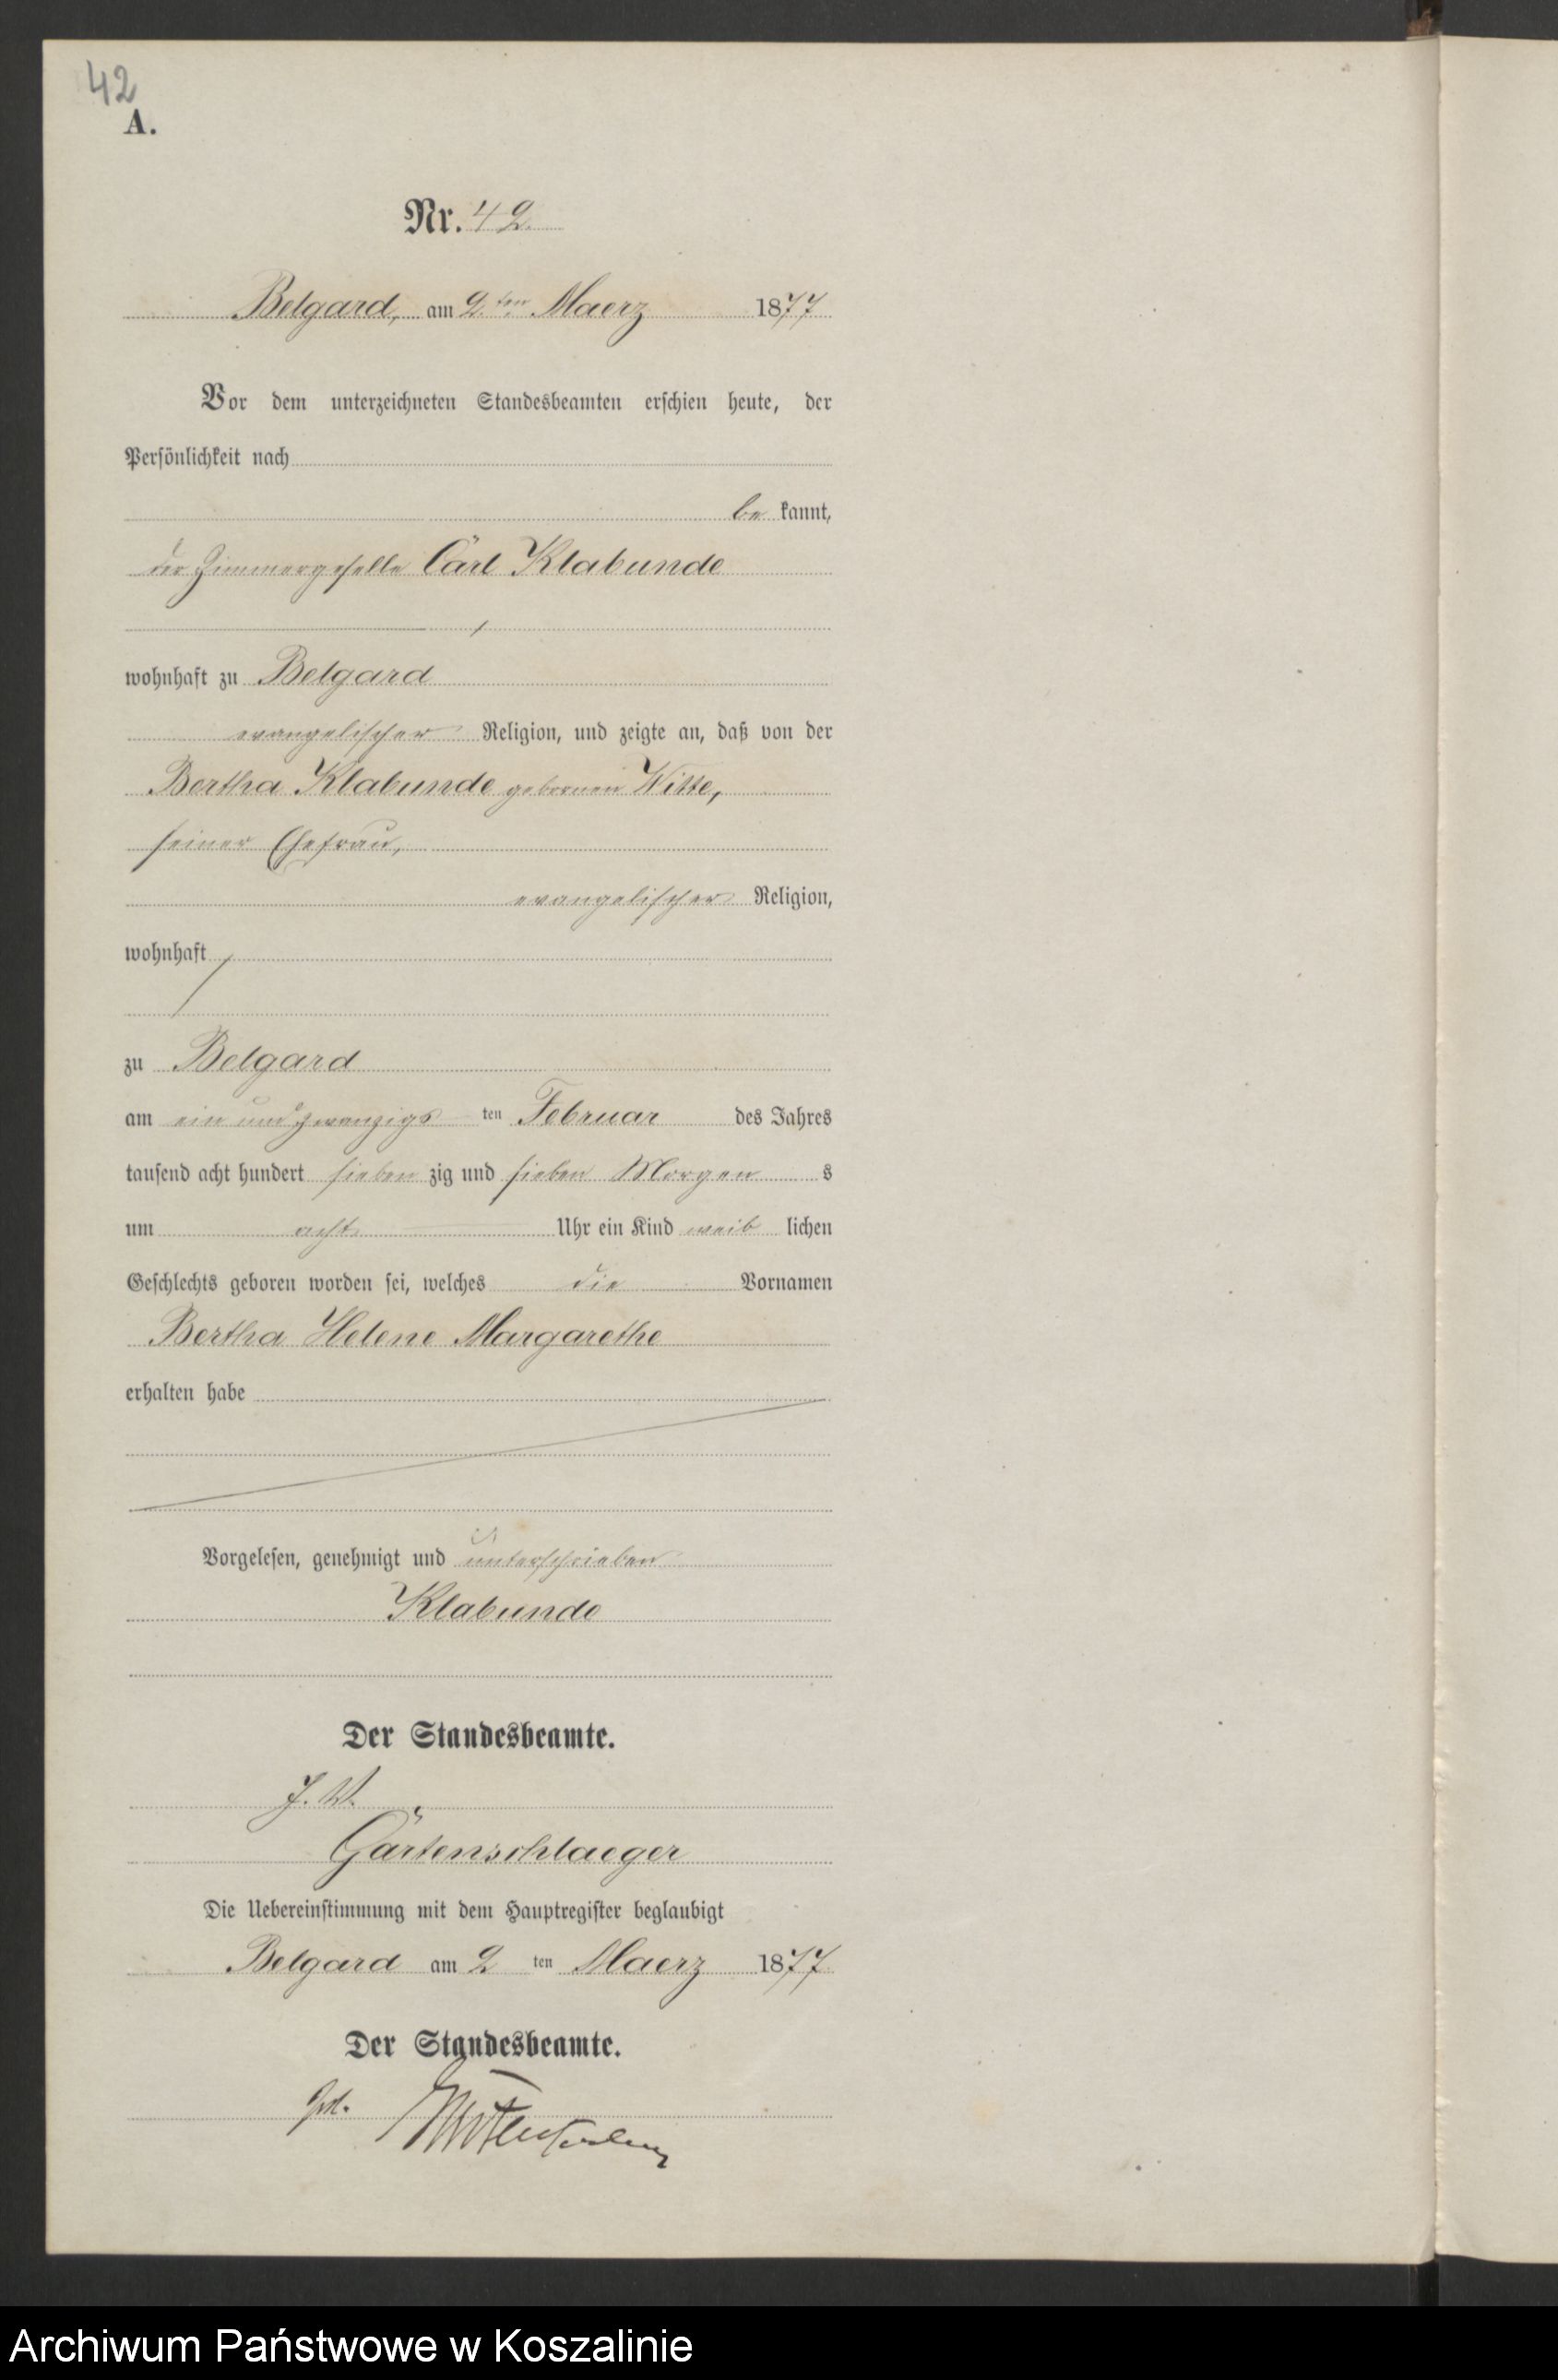 42
A.
Nr. 42.
Belgard, am 2ten Maerz 1877
Vor dem unterzeichneten Standesbeamten erschien heute, der
Persönlichkeit nach
be kannt,
der Zimmergeselle Carl Klabunde
wohnhaft zu Belgard
evangelischer Religion, und zeigte an, daß von der
Bertha Klabunde gebornen Witte,
seiner Ehefrau,
evangelischer Religion,
wohnhaft
zu Belgard
am ein und zwanzigs ten Februar des Jahres
tausend acht hundert sieben zig und sieben Morgen s
um acht Uhr ein Kind weib lichen
Geschlechts geboren worden sei, welches die Vornamen
Bertha Helene Margarethe
erhalten habe
Vorgelesen, genehmigt und unterschrieben
Klabunde
Der Standesbeamte.
J. V.
Gartenschlaeger
Die Uebereinstimmung mit dem Hauptregister beglaubigt
Belgard am 2 ten Maerz 1877.
Der Standesbeamte.
Archiwum Państwowe w Koszalinie